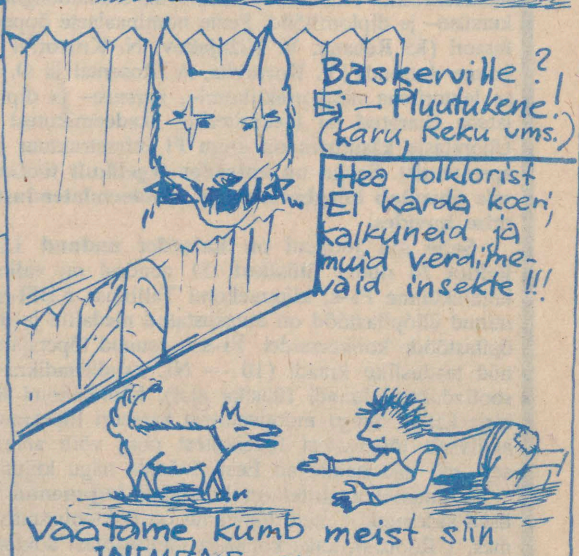 Baskerville?
Ei – Pluutukene!
(Karu, Reku vms.)
Hea folklorist
Ei karda koeri,
kalkuneid ja
muid verdime-
vaid insekte!!!
Vaatame, kumb meist siin